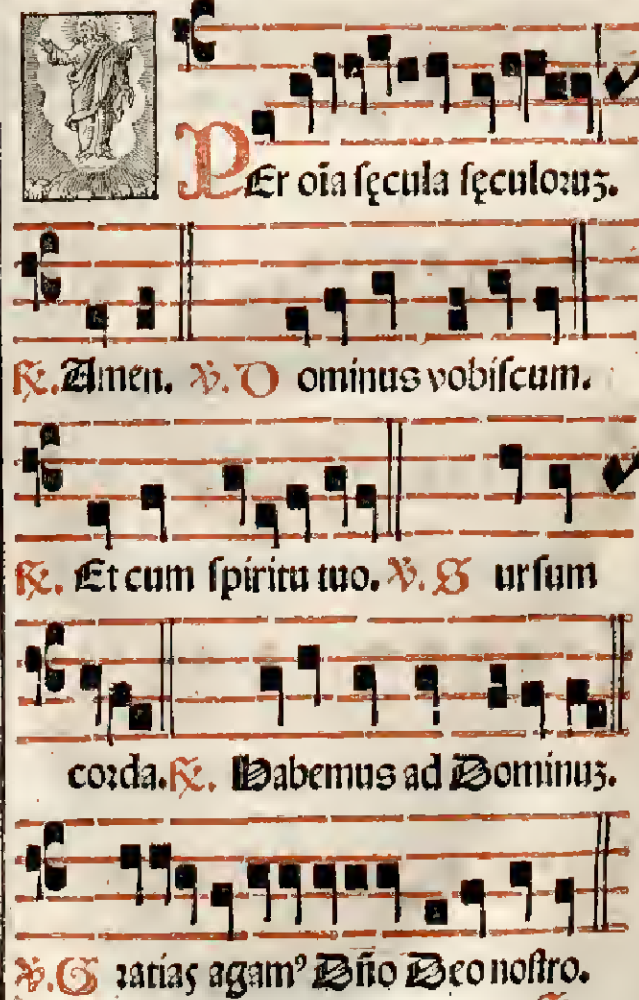 PEr oīa ſęcula ſęculoꝛuꝫ.
℟. Amen. ℣. Dominus vobiſcum.
℟. Et cum ſpiritu tuo. ℣. Surſum
coꝛda. ℟. Habemus ad Dominuꝫ.
℣. Gꝛatias agamꝰ Dn̄o Deo noſtro.